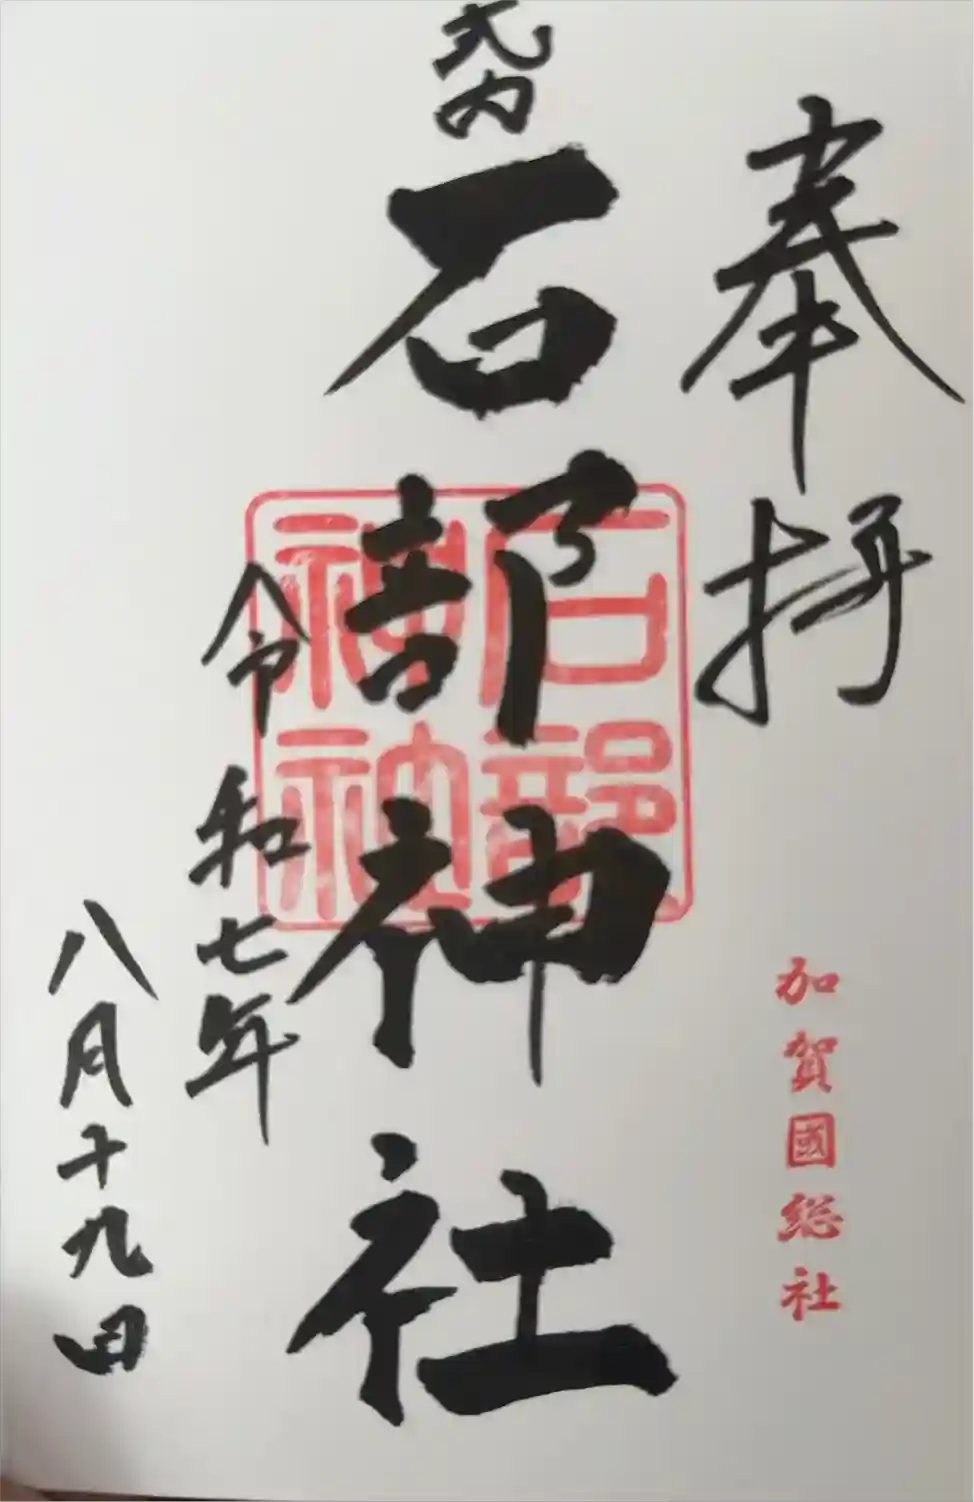 奉拝
加賀國総社
式内
石部神社
石部神社
令和七年
八月十九日